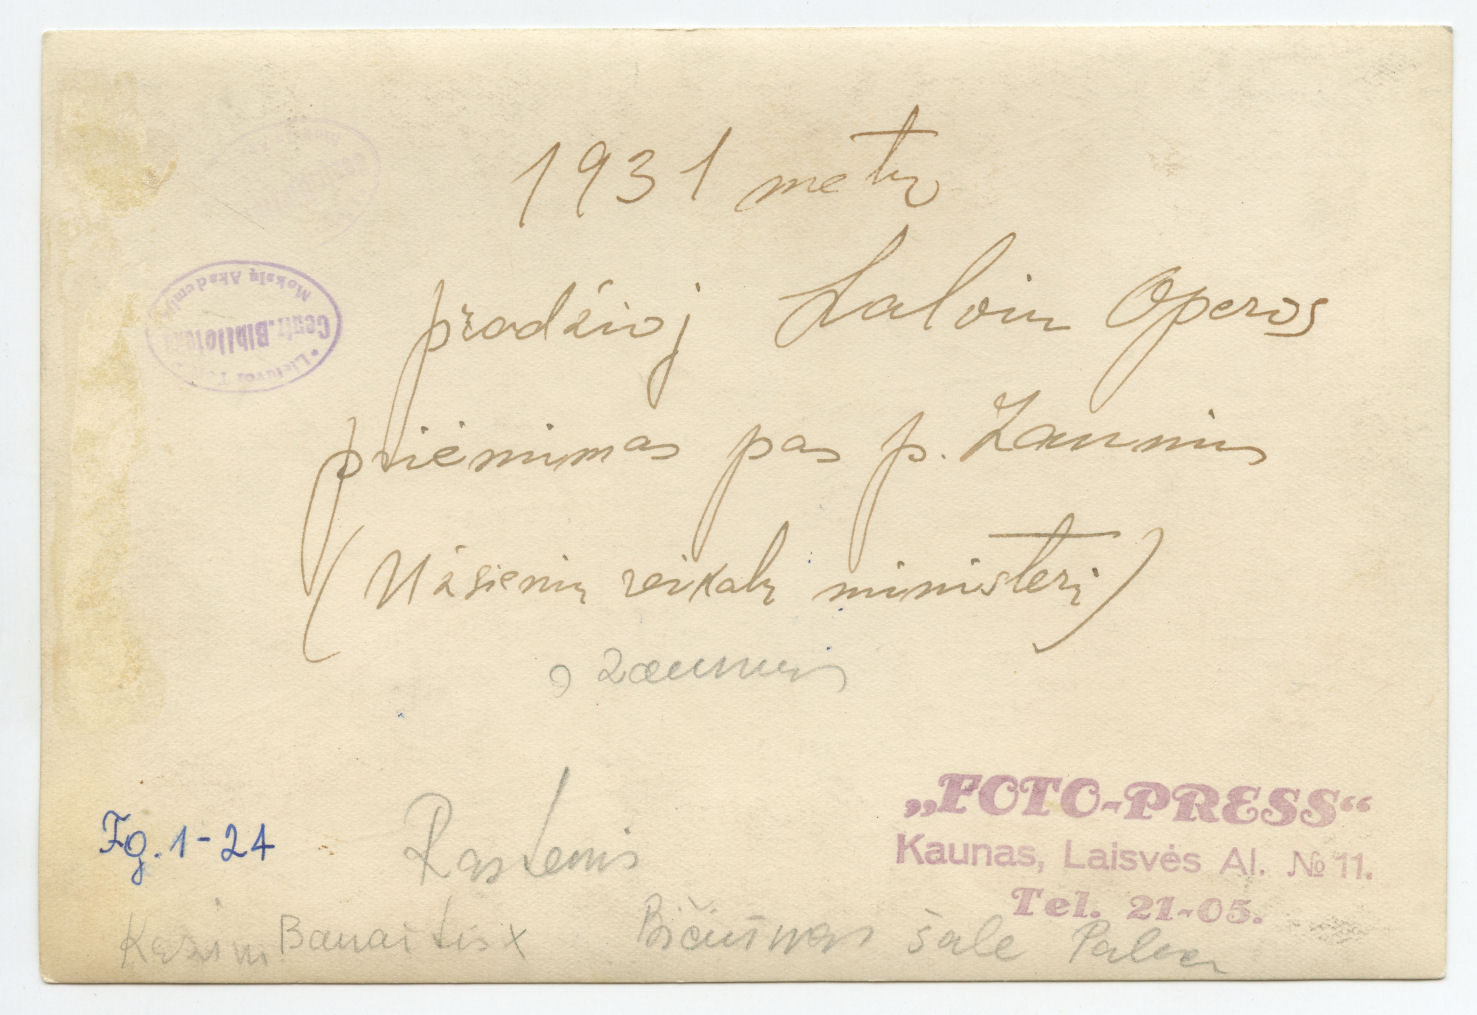 1931 metų
pradžioj Latvių Operos
priėmimas pas p. Zaunius
(Užsienių reikalų ministerį)
Zaunius
Lietuvos
Centr. Biblioteka
Mokslų Akademijos
Fg. 1-24
„FOTO-PRESS“
Kaunas, Laisvės Al. № 11.
Tel. 21-05.
Rastenis
Kazim Banaitis x
Bičiūnas šale